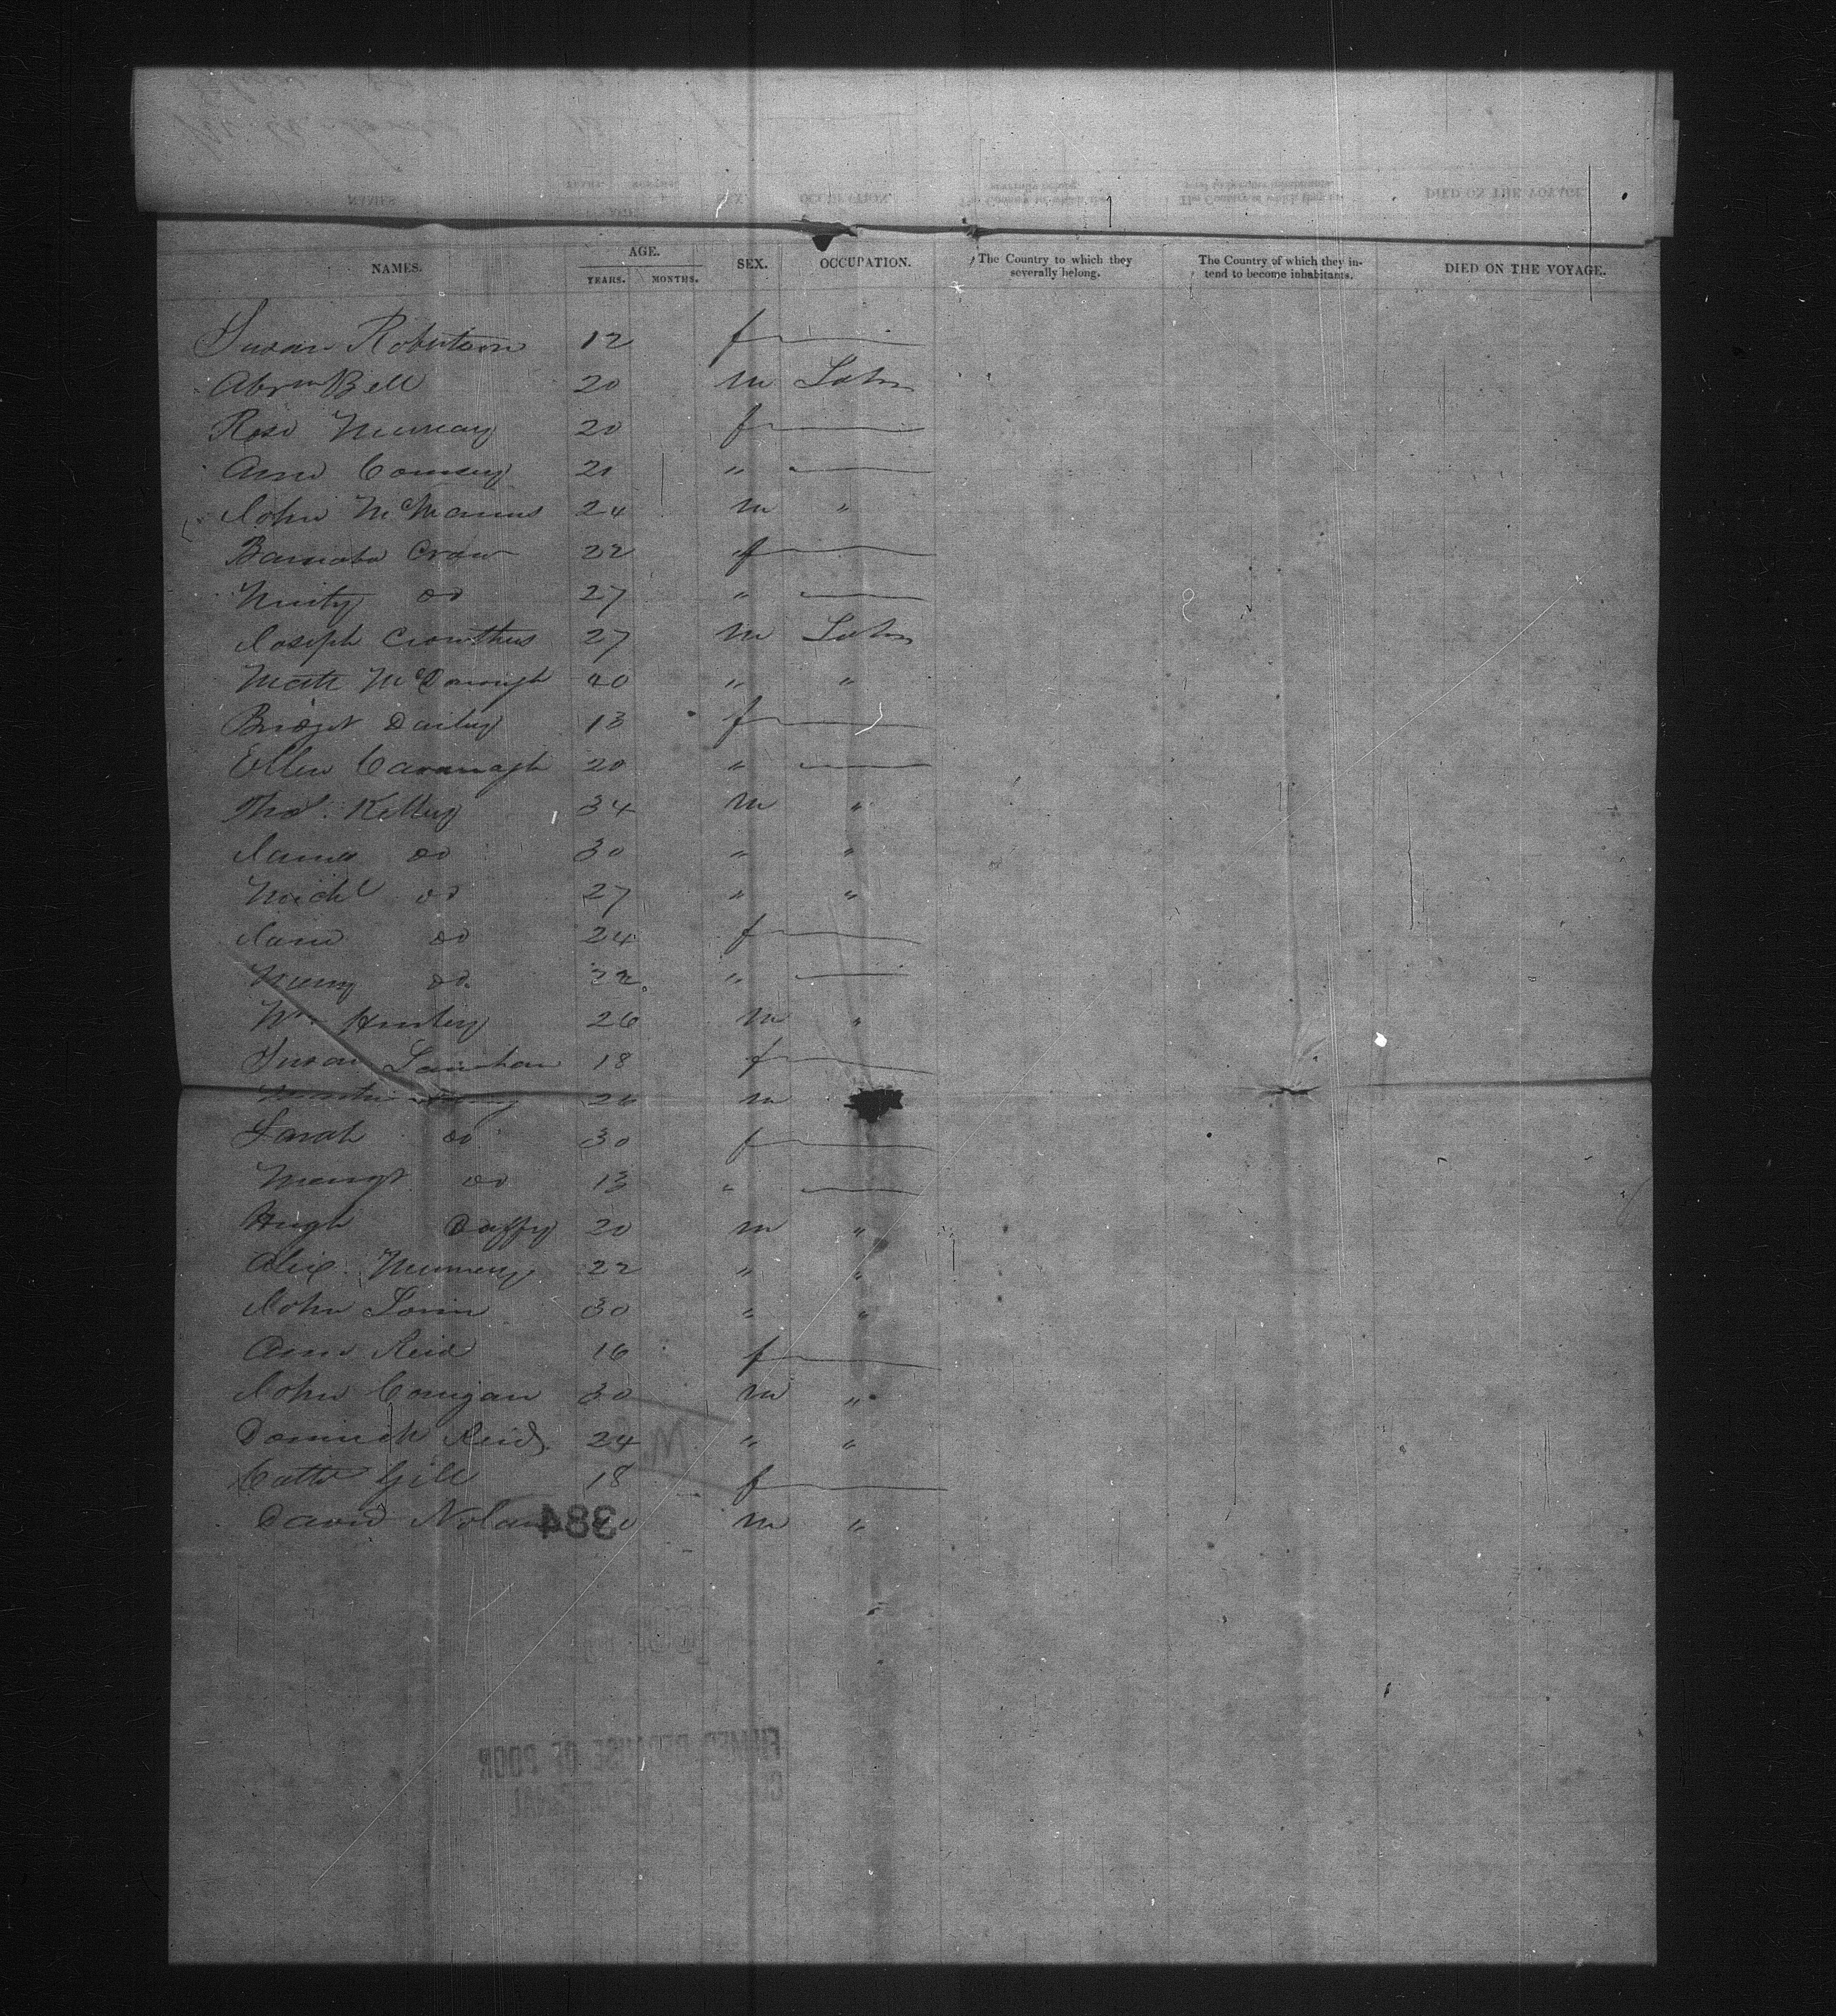 NAMES. AGE. YEARS. MONTHS. SEX. OCCUPATION. The Country to which they severally belong. The Country of which they intend to become inhabitants. DIED ON THE VOYAGE.
Susan Robertson 12 f
Abrm Bell 20 m Labr
Rose Murray 20 f
Ann 21 "
John McManus 24 m "
22 f
do 27 "
Joseph Crowthers 27 m Labr
Matt McDonough 40 " "
Bridget Dailey 13 f
Ellen Cavanagh 20 "
Thos. Kelley 34 m "
James do 30 " "
Michl do 27 " "
Jane do 24 f
do 22 "
Wm 26 m "
Susan 18 f
m
Sarah do 30 f
Margt do 13 "
Hugh Duffy 20 m "
Alex. Murray 22 " "
John 30 " "
Ann Reid 16 f
John Corrigan 30 m "
Dominick Reid 24 " "
Cathe Gill 18 f
David Nolan m "
384
FILMED BECAUSE OF POOR